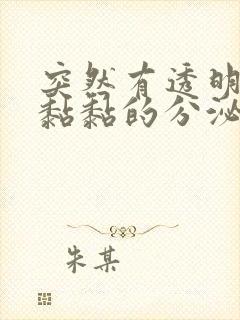 突然有透明
黏黏的分泌
朱某